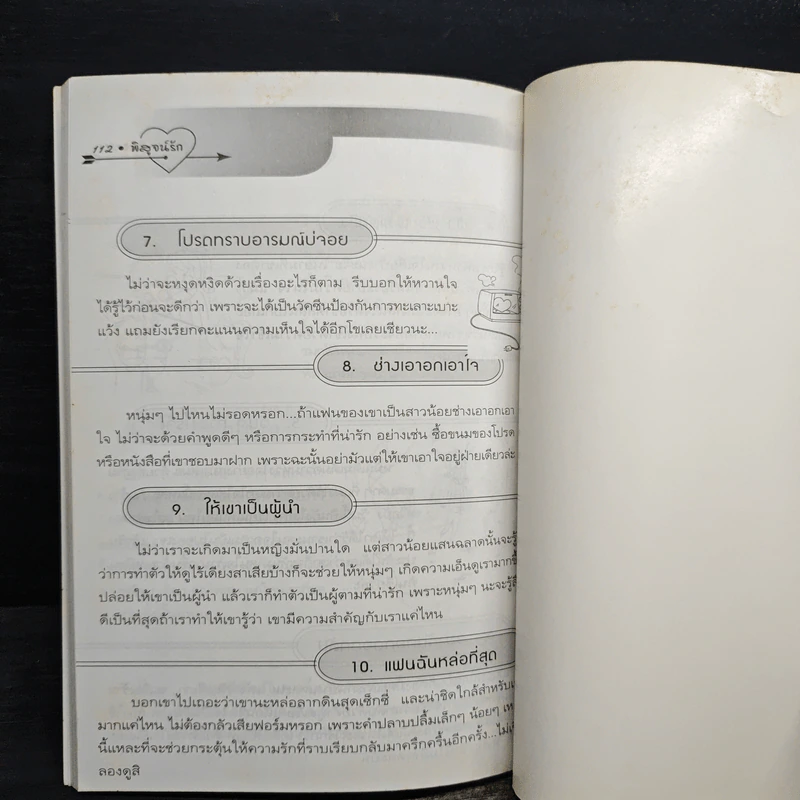 112 • พิสูจน์รัก
7. โปรดทราบอารมณ์บ่จอย
ไม่ว่าจะหงุดหงิดด้วยเรื่องอะไรก็ตาม รีบบอกให้หวานใจ
ได้รู้ไว้ก่อนจะดีกว่า เพราะจะได้เป็นวัคซีนป้องกันการทะเลาะเบาะ
แว้ง แถมยังเรียกคะแนนความเห็นใจได้อีกโขเลยเชียวนะ...
8. ช่างเอาอกเอาใจ
หนุ่มๆ ไปไหนไม่รอดหรอก...ถ้าแฟนของเขาเป็นสาวน้อยช่างเอาอกเอา
ใจ ไม่ว่าจะด้วยคำพูดดีๆ หรือการกระทำที่น่ารัก อย่างเช่น ซื้อขนมของโปรด
หรือหนังสือที่เขาชอบมาฝาก เพราะฉะนั้นอย่ามัวแต่ให้เขาเอาใจอยู่ฝ่ายเดียวล่ะ
9. ให้เขาเป็นผู้นำ
ไม่ว่าเราจะเกิดมาเป็นหญิงมั่นปานใด แต่สาวน้อยแสนฉลาดนั้นจะรู้
ว่าการทำตัวให้ดูไร้เดียงสาเสียบ้างก็จะช่วยให้หนุ่มๆ เกิดความเอ็นดูเรามาก
ปล่อยให้เขาเป็นผู้นำ แล้วเราก็ทำตัวเป็นผู้ตามที่น่ารัก เพราะหนุ่มๆ นะจะรู้
ดีเป็นที่สุดถ้าเราทำให้เขารู้ว่า เขามีความสำคัญกับเราแค่ไหน
10. แฟนฉันหล่อที่สุด
บอกเขาไปเถอะว่าเขานะหล่อลากดินสุดเซ็กซี่ และน่าชิดใกล้สำหรับ
มากแค่ไหน ไม่ต้องกลัวเสียฟอร์มหรอก เพราะคำปลาบปลื้มเล็กๆ น้อยๆ
นี้แหละที่จะช่วยกระตุ้นให้ความรักที่ราบเรียบกลับมาครึกครื้นอีกครั้ง...
ลองดูสิ